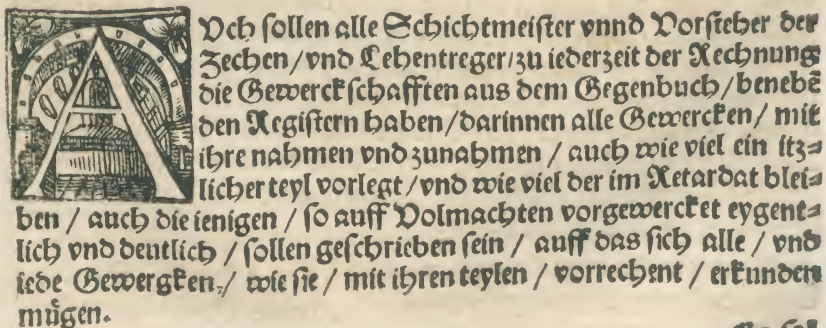 AUch sollen alle Schichtmeister vnnd Vorsteher der
Zechen / vnd Lehentreger / zu iederzeit der Rechnung
die Gewerckschafften aus dem Gegenbuch / benebē
den Registern haben / darinnen alle Gewercken / mit
ihre nahmen vnd zunahmen / auch wie viel ein itz=
licher teyl vorlegt / vnd wie viel der im Retardat blei=
ben / auch die ienigen / so auff Volmachten vorgewercket eygent=
lich vnd deutlich / sollen geschrieben sein / auff das sich alle / vnd
iede Gewergken / wie sie / mit ihren teylen / vorrechent / erkunden
mügen.